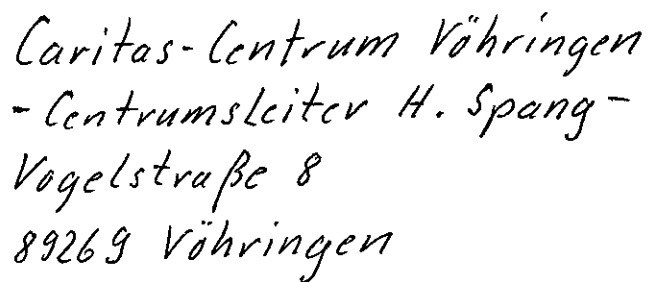 Caritas-Centrum Vöhringen
- Centrumsleiter H. Spang -
Vogelstraße 8
89269 Vöhringen